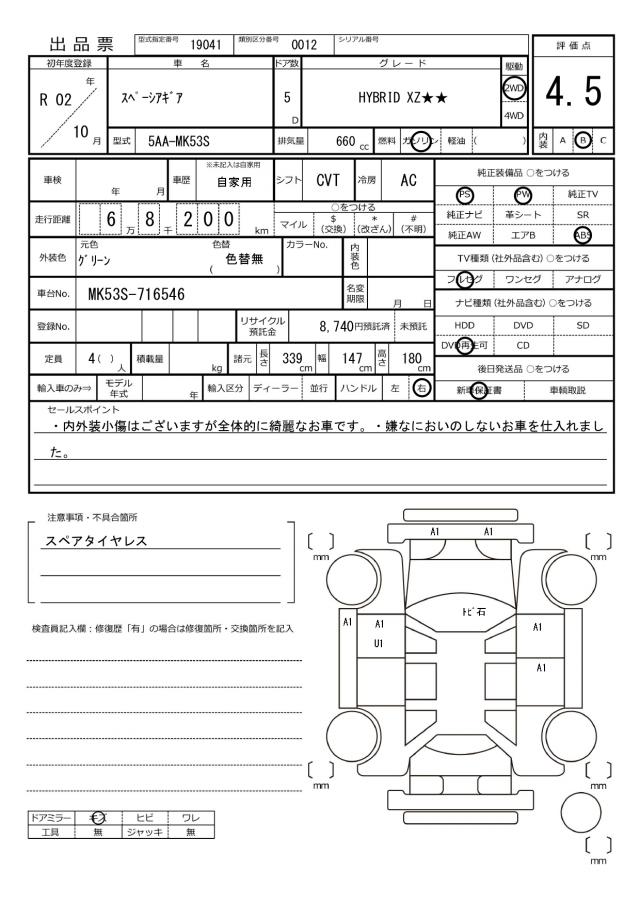 出品票
型式指定番号 19041 類別区分番号 0012 シリアル番号
評価点
4.5
内装 A B C
初年度登録 車名 ドア数 グレード 駆動
R 02 年 10 月
スペーシアギア
5 D
HYBRID XZ★★
2WD
4WD
型式 5AA-MK53S 排気量 660 cc 燃料 ガソリン 軽油 ( )
車検 年 月 車歴 ※未記入は自家用 自家用 シフト CVT 冷房 AC
走行距離 6 万 8 千 2 0 0 km
○をつける
マイル $ (交換) * (改ざん) # (不明)
外装色 元色 グリーン 色替 ( 色替無 ) カラーNo. 内装色
車台No. MK53S-716546 名変期限 月 日
登録No. リサイクル預託金 8,740円預託済 未預託
定員 4( ) 人 積載量 kg 諸元 長さ 339 cm 幅 147 cm 高さ 180 cm
輸入車のみ⇒ モデル年式 年 輸入区分 ディーラー 並行 ハンドル 左 右
純正装備品 ○をつける
PS PW 純正TV
純正ナビ 革シート SR
純正AW エアB ABS
TV種類(社外品含む) ○をつける
フルセグ ワンセグ アナログ
ナビ種類(社外品含む) ○をつける
HDD DVD SD
DVD再生可 CD
後日発送品 ○をつける
新車保証書 車輌取説
セールスポイント
・内外装小傷はございますが全体的に綺麗なお車です。・嫌なにおいのしないお車を仕入れまし
た。
注意事項・不具合箇所
スペアタイヤレス
検査員記入欄:修復歴「有」の場合は修復箇所・交換箇所を記入
ドアミラー キズ ヒビ ワレ
工具 無 ジャッキ 無
A1 A1
〔 〕 mm
〔 〕 mm
トビ石
A1 A1 A1
U1
A1
〔 〕 mm
〔 〕 mm
〔 〕 mm